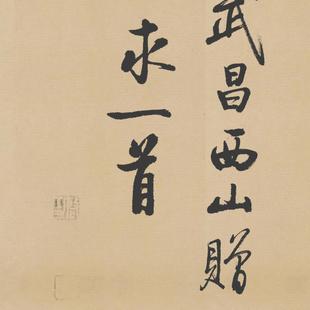 武昌西山贈
求一首